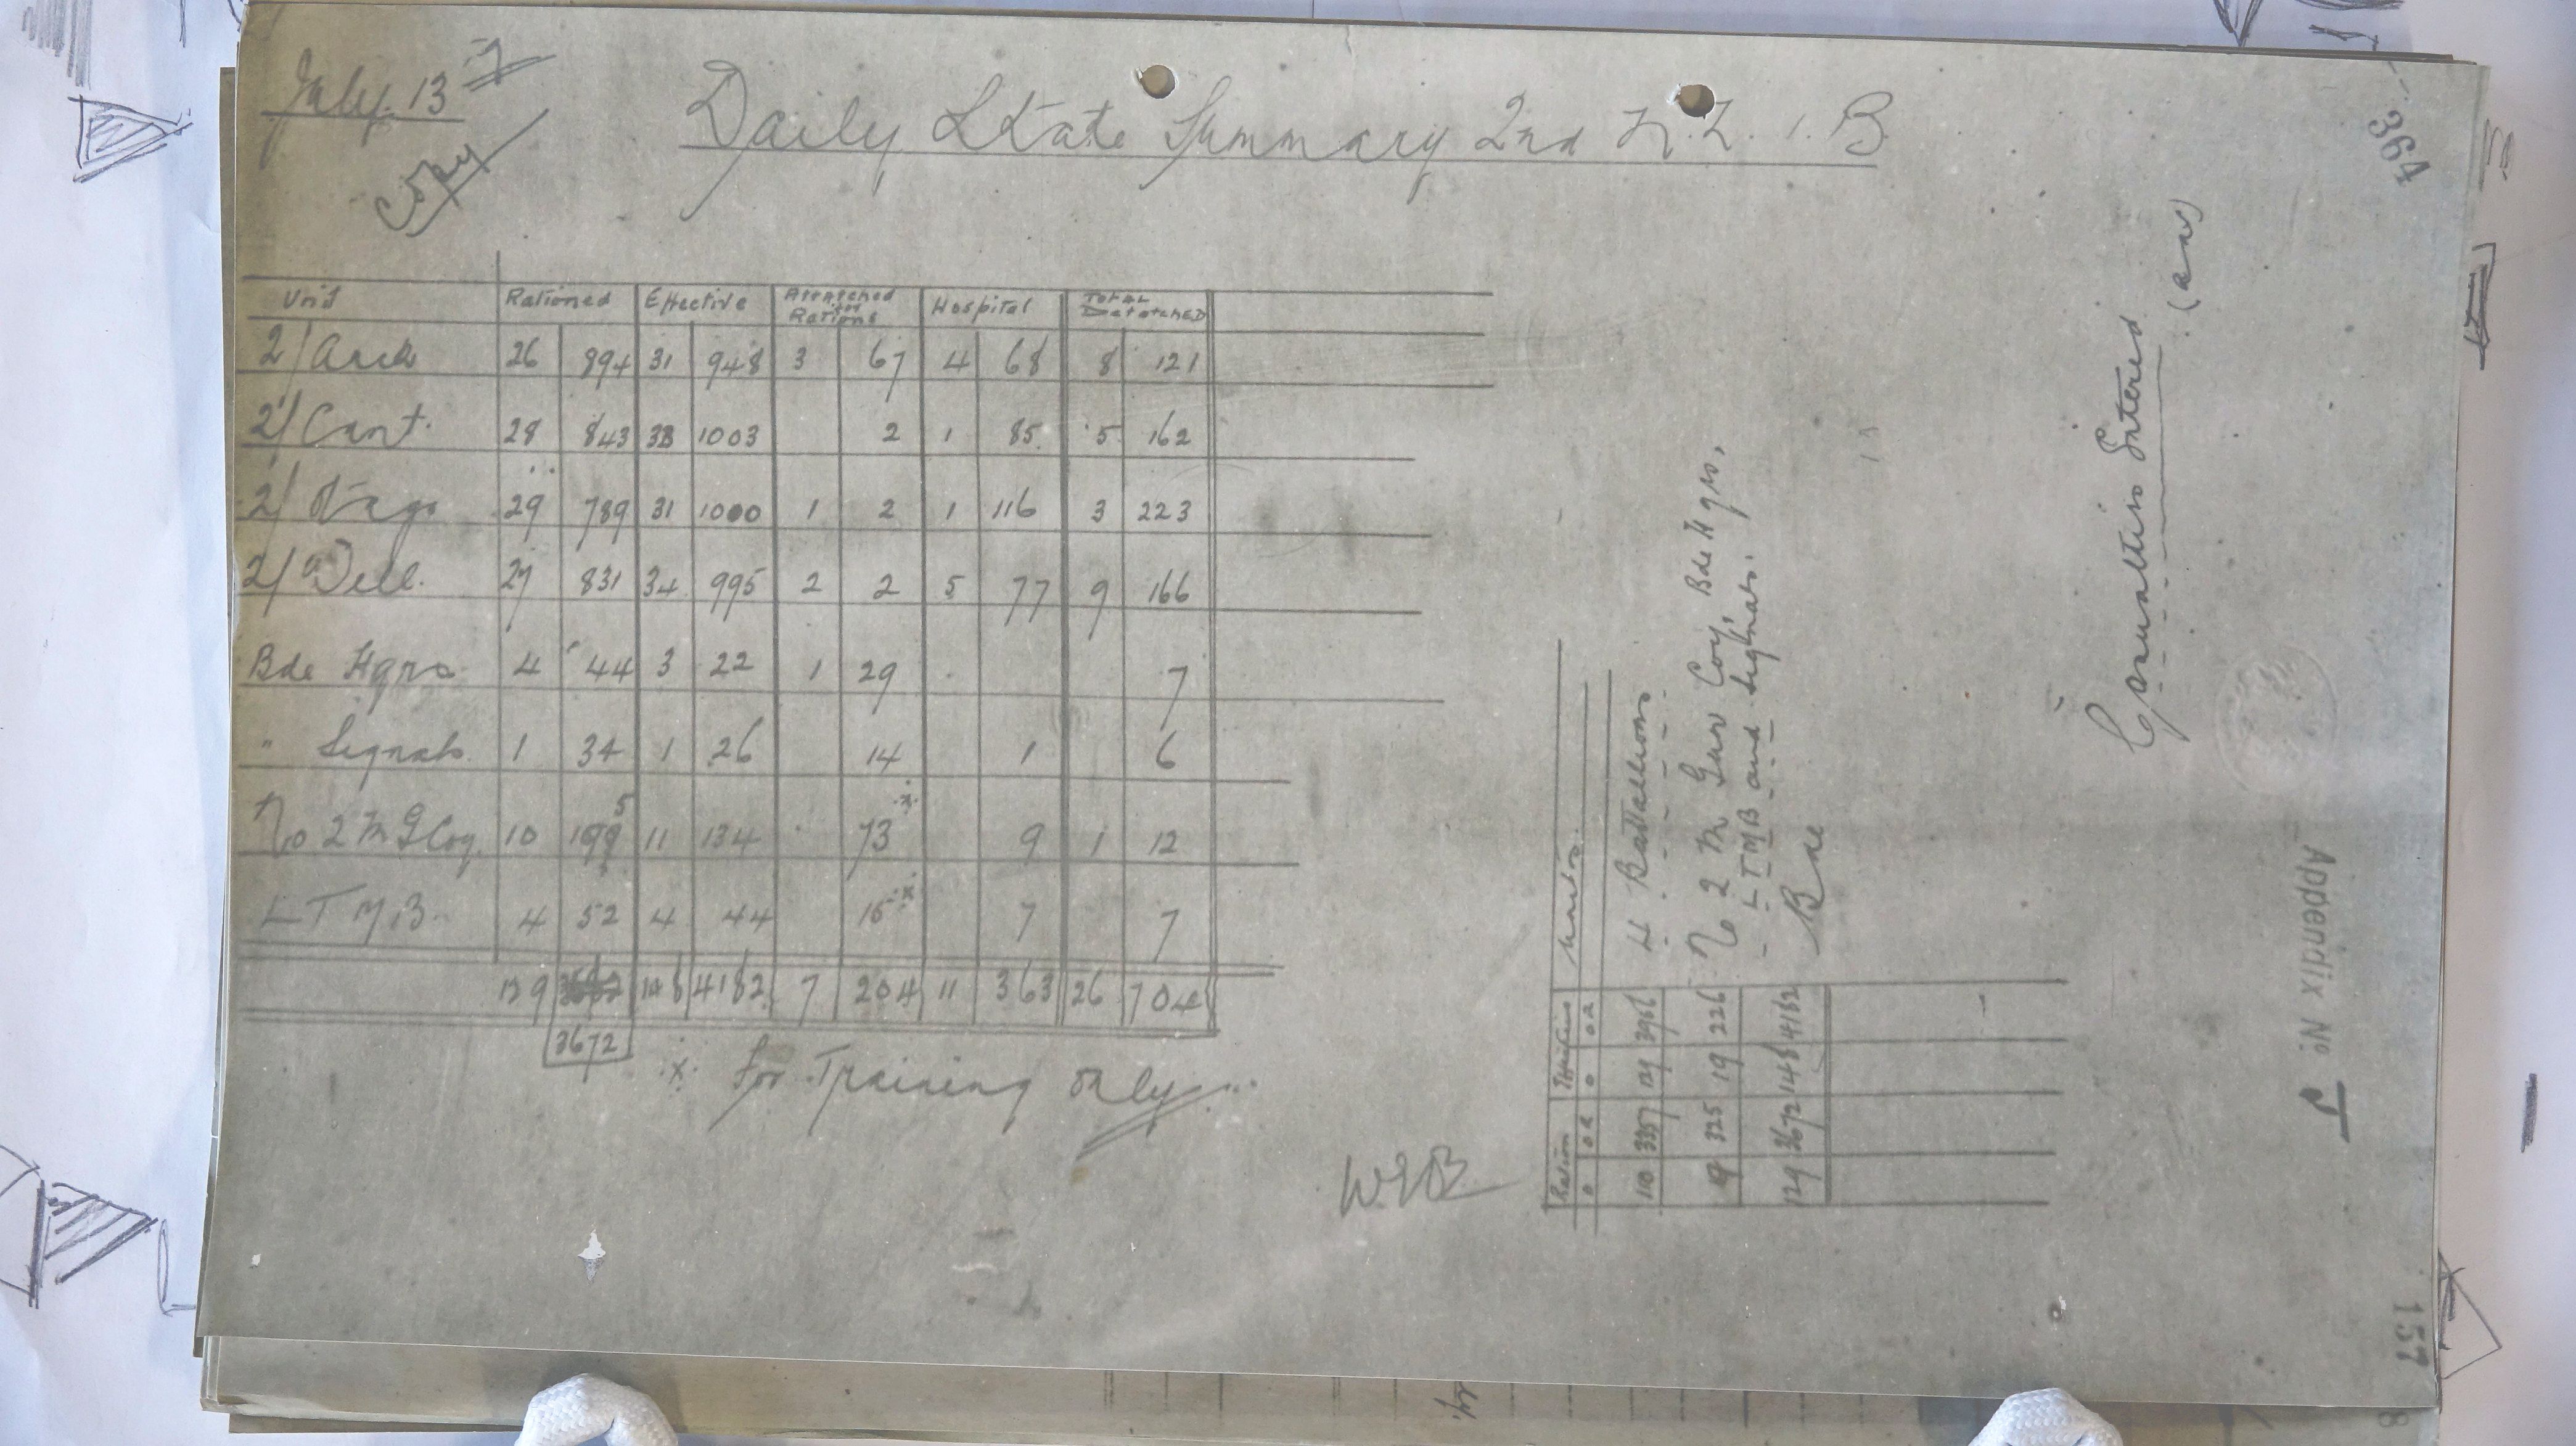 July 13
Copy
Daily State Summary 2nd N.Z.I.B
364
Unit Rationed Effective Attatched for Rations Hospital Total Detatched
2/Auck 26 894 31 948 3 67 4 68 8 121
2/Cant. 28 843 33 1003 2 1 85 5 162
2/Otago 29 789 31 1000 1 2 1 116 3 223
2/Well. 27 831 34 995 2 2 5 77 9 166
Bde Hqrs 4 44 3 22 1 29 7
" Signals 1 34 1 26 14 1 6
No 2 M G Coy. 10 11 134 73 x 9 1 12
L T M B. 4 52 4 44 15 x 7 7
129 148 4182 7 204 11 363 26 704
3672
x for Training only
WEB
Ration Effectives
O OR O OR Units.
110 3357 129 3966 4 Battallions
19 325 19 226 No 2 M Gun Coy, Bde Hqrs, LTMB and Signals.
129 3672 148 4182 Bde
Casualties Entered
Appendix No. J
157
8